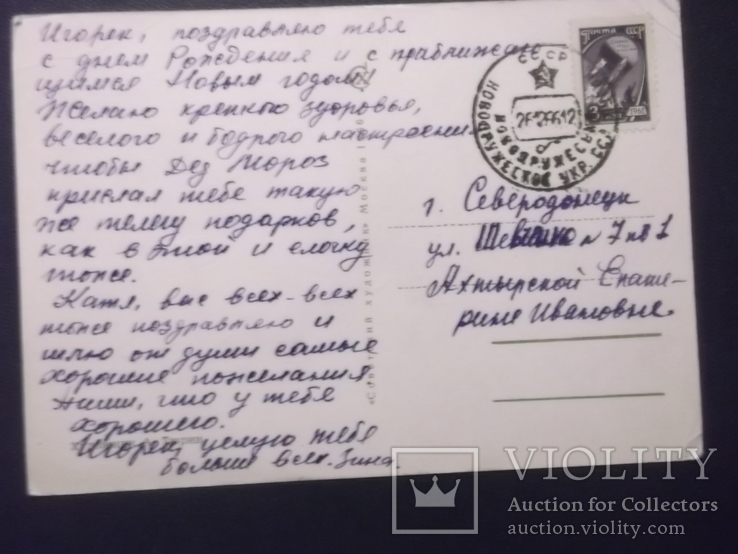 Игорек, поздравляю тебя
с днем Рождения и с приближаю
щимся Новым годом.
Желаю крепкого здоровья,
веселого и бодрого настроения
чтобы Дед Мороз
прислал тебе такую
же телегу подарков,
как в этой и елочку
тоже.
Катя, вас всех-всех
тоже поздравляю и
шлю от души самые
хорошие пожелания
Пиши, что у тебя
хорошего.
Игорек, целую тебя
больше всех. Зина.
«Советский художник» Москва
СССР
НОВОДРУЖЕСК
НОВОДРУЖЕСКОЕ УКР. ССР
почта СССР
3
г. Северодонецк
ул. Шевченко
Ахтырской Екате-
рине Ивановне.
VIOLITY
Auction for Collectors
auction.violity.com